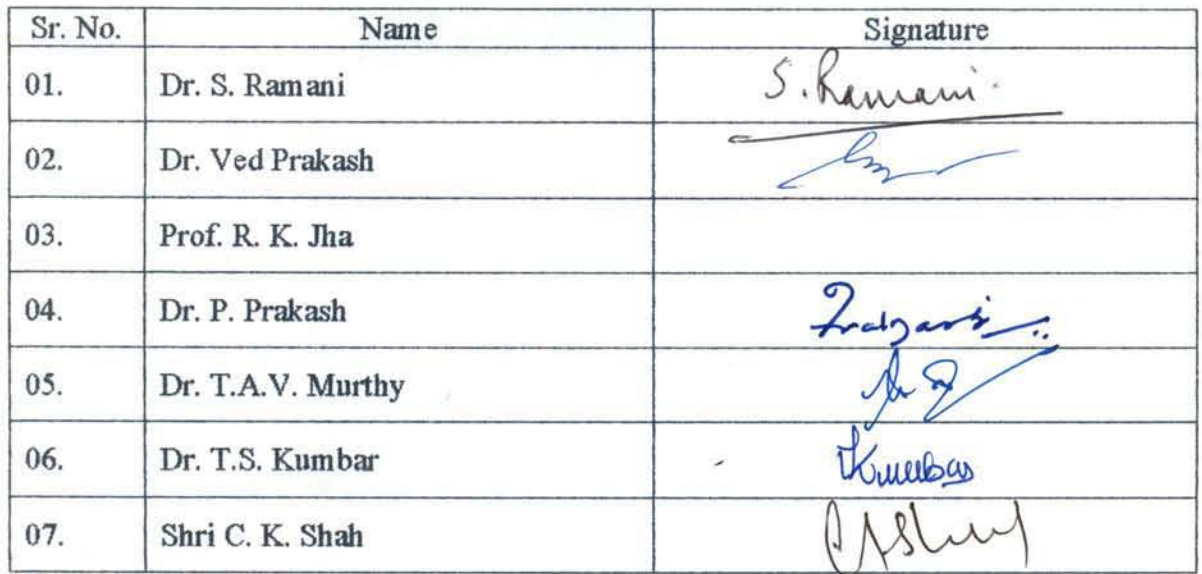 Sr. No. Name Signature
01. Dr. S. Ramani S. Ramani.
02. Dr. Ved Prakash
03. Prof. R. K. Jha
04. Dr. P. Prakash
05. Dr. T.A.V. Murthy
06. Dr. T.S. Kumbar Kumbar
07. Shri C. K. Shah